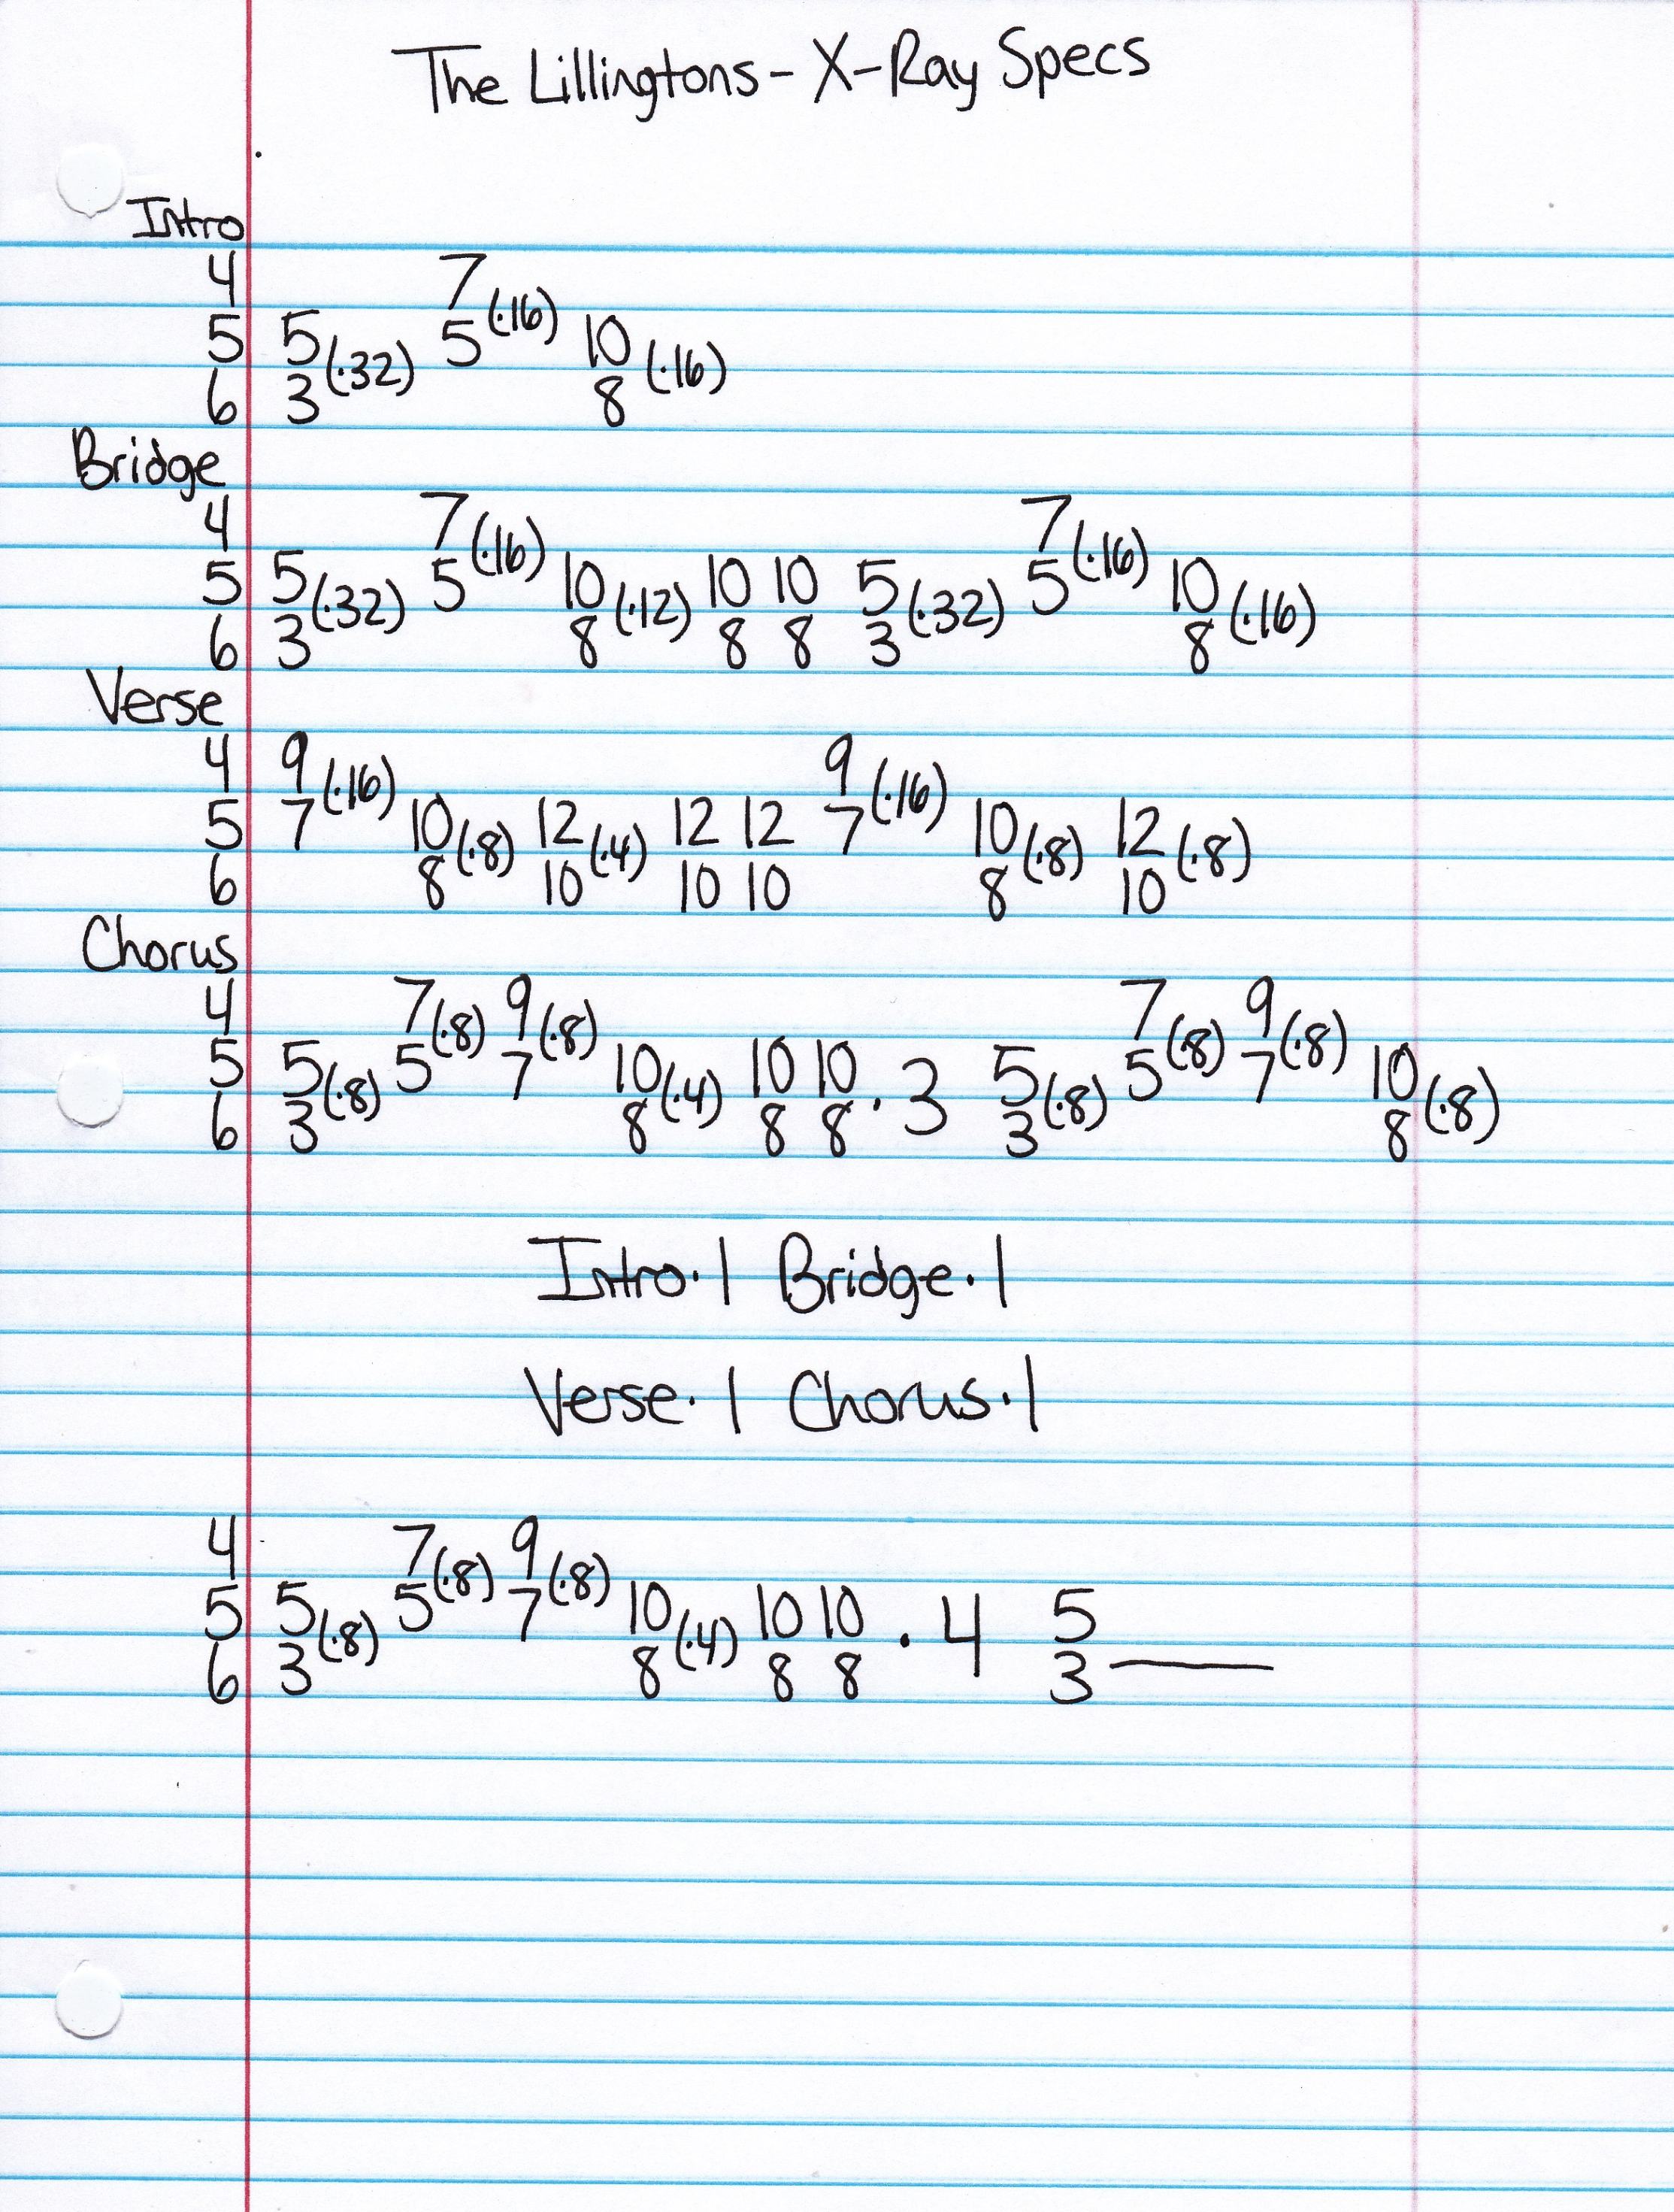 The Lillingtons - X-Ray Specs
Intro
4 7
5 5(·32) 5(·16) 10
6 3 8(·16)
Bridge
4 7 7
5 5(·32) 5(·16) 10(·12) 10 10 5(·32) 5(·16) 10
6 3 8 8 8 3 8(·16)
Verse
4 9(·16) 9(·16)
5 7 10(·8) 12(·4) 12 12 7 10(·8) 12(·8)
6 8 10 10 10 8 10
Chorus
4 7(·8) 9(·8) 7(·8) 9(·8)
5 5(·8) 5 7 10(·4) 10 10 · 3 5(·8) 5 7 10(·8)
6 3 8 8 8 3 8
Intro·1 Bridge·1
Verse·1 Chorus·1
4 7(·8) 9(·8)
5 5(·8) 5 7 10(·4) 10 10 · 4 5
6 3 8 8 8 3